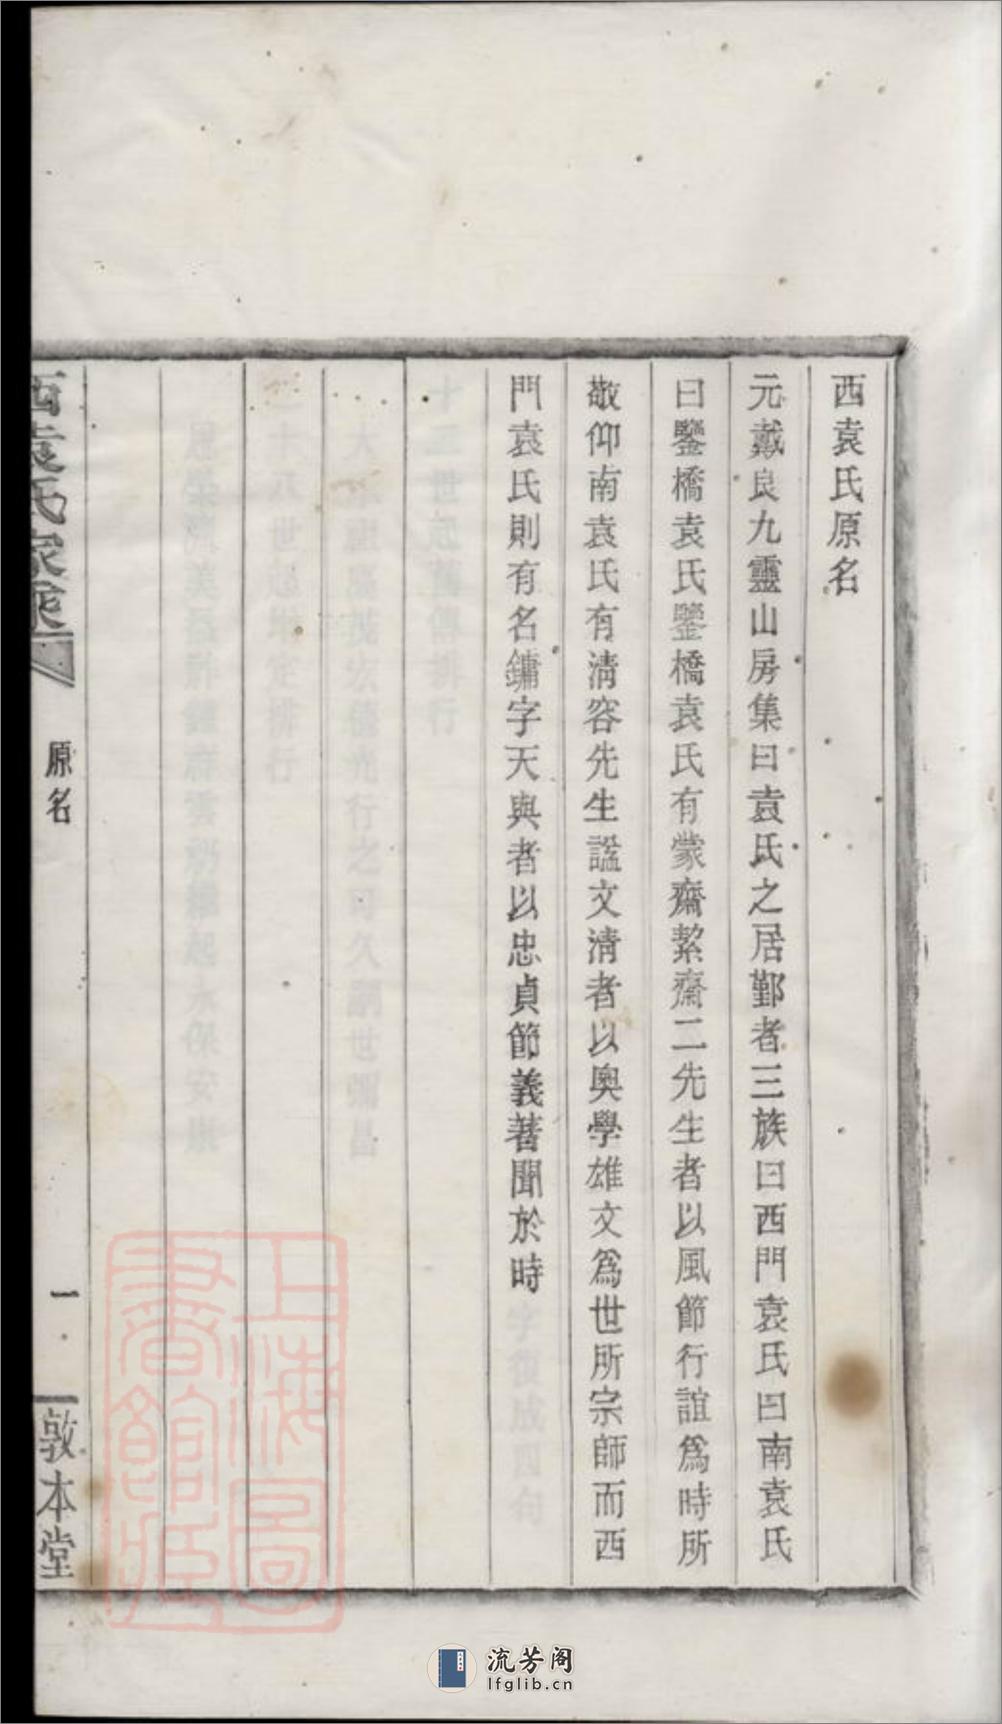 西袁氏原名
元戴良九靈山房集曰袁氏之居鄞者三族曰西門袁氏曰南袁氏
曰鑒橋袁氏鑒橋袁氏有蒙齋絜齋二先生者以風節行誼爲時所
敬仰南袁氏有清容先生諡文清者以奧學雄文爲世所宗師而西
門袁氏則有名鏞字天與者以忠貞節義著聞於時
西袁氏家乘
原名
一
敦本堂
上海圖書館藏
流芳阁
lfglib.cn